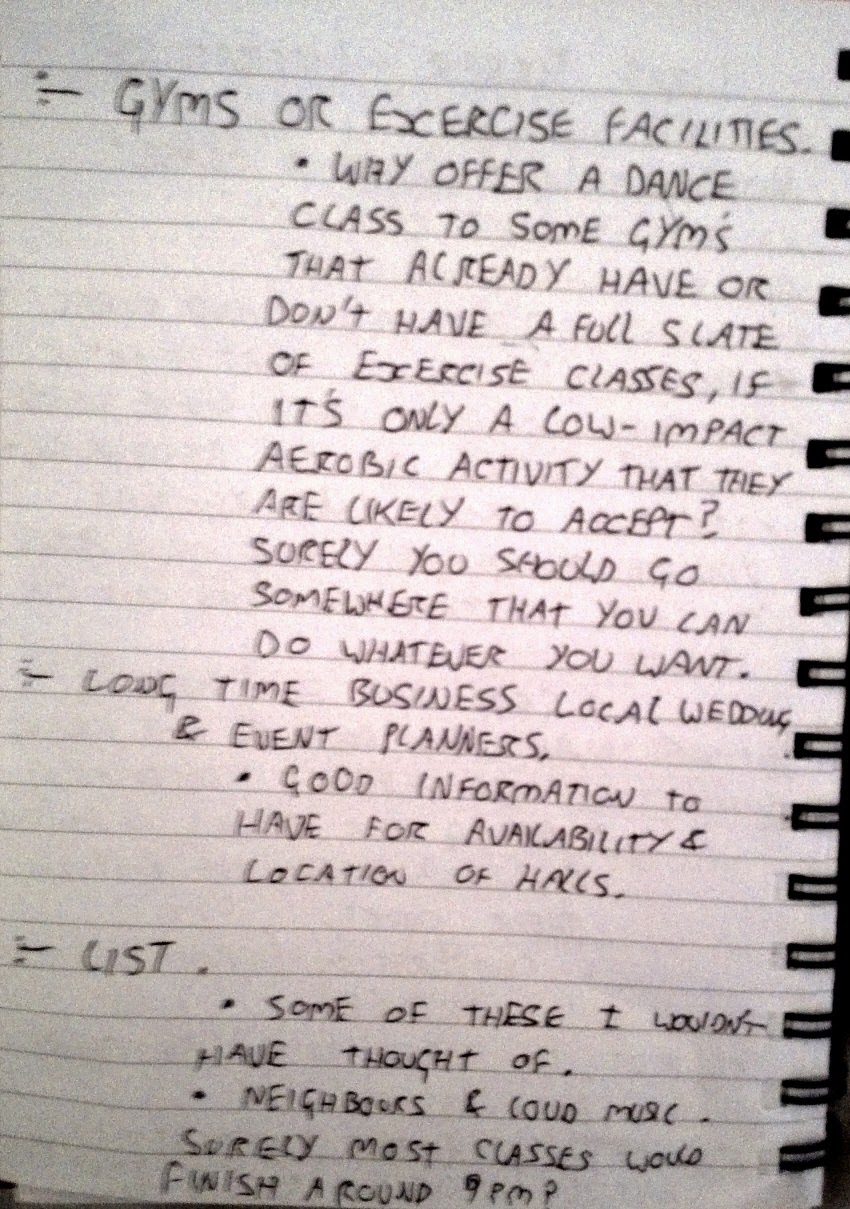 :- GYMS OR EXERCISE FACILITIES.
• WHY OFFER A DANCE
CLASS TO SOME GYM'S
THAT ALREADY HAVE OR
DON'T HAVE A FULL SLATE
OF EXERCISE CLASSES, IF
IT'S ONLY A LOW-IMPACT
AEROBIC ACTIVITY THAT THEY
ARE LIKELY TO ACCEPT?
SURELY YOU SHOULD GO
SOMEWHERE THAT YOU CAN
DO WHATEVER YOU WANT.
:- LONG TIME BUSINESS LOCAL WEDDING
& EVENT PLANNERS,
• GOOD INFORMATION TO
HAVE FOR AVAILABILITY &
LOCATION OF HALLS.
:- LIST.
• SOME OF THESE I WOULDN'T
HAVE THOUGHT OF.
• NEIGHBOURS & LOUD MUSIC.
SURELY MOST CLASSES WOULD
FINISH AROUND 9PM?